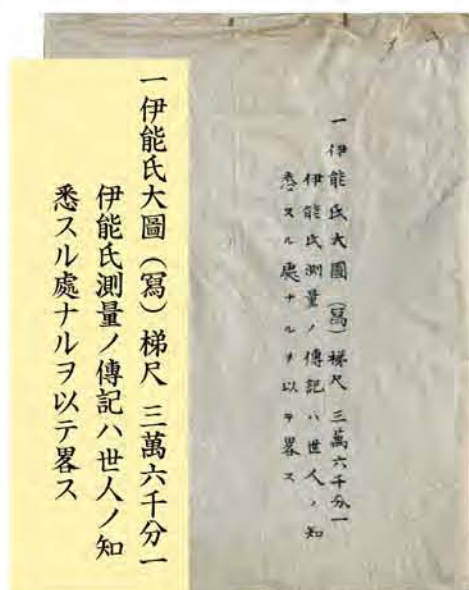 一伊能氏大圖（寫）梯尺 三萬六千分一
伊能氏測量ノ傳記ハ世人ノ知
悉スル處ナルヲ以テ畧ス
一伊能氏大圖（寫）梯尺 三萬六千分一
伊能氏測量ノ傳記ハ世人ノ知
悉スル處ナルヲ以テ畧ス